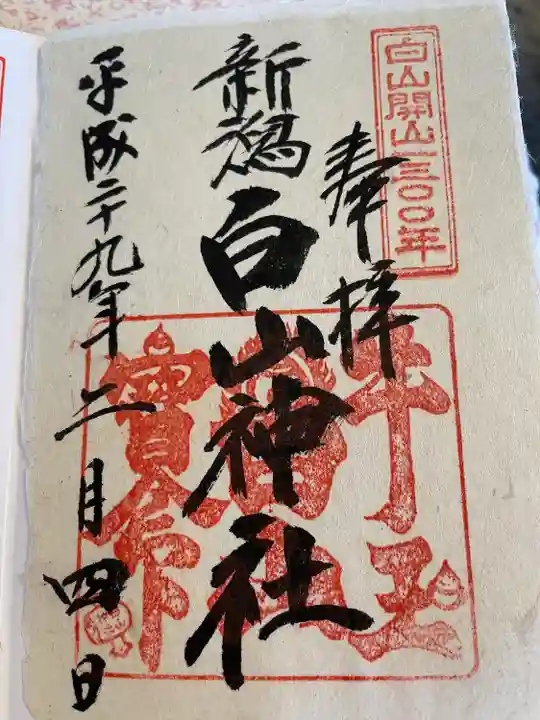 白山開山一三〇〇年
奉拝
新潟白山神社
平成二十九年二月四日
牛玉
寶命